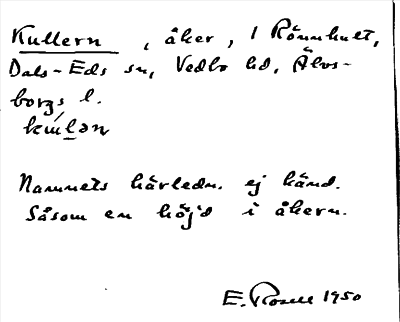 Kullern, åker, i Rönnhult,
Dals-Eds sn, Vedbo hd, Älvs-
borgs l.
Namnets härledn. ej känd.
Såsom en höjd i åkern.
E. Rosell 1950